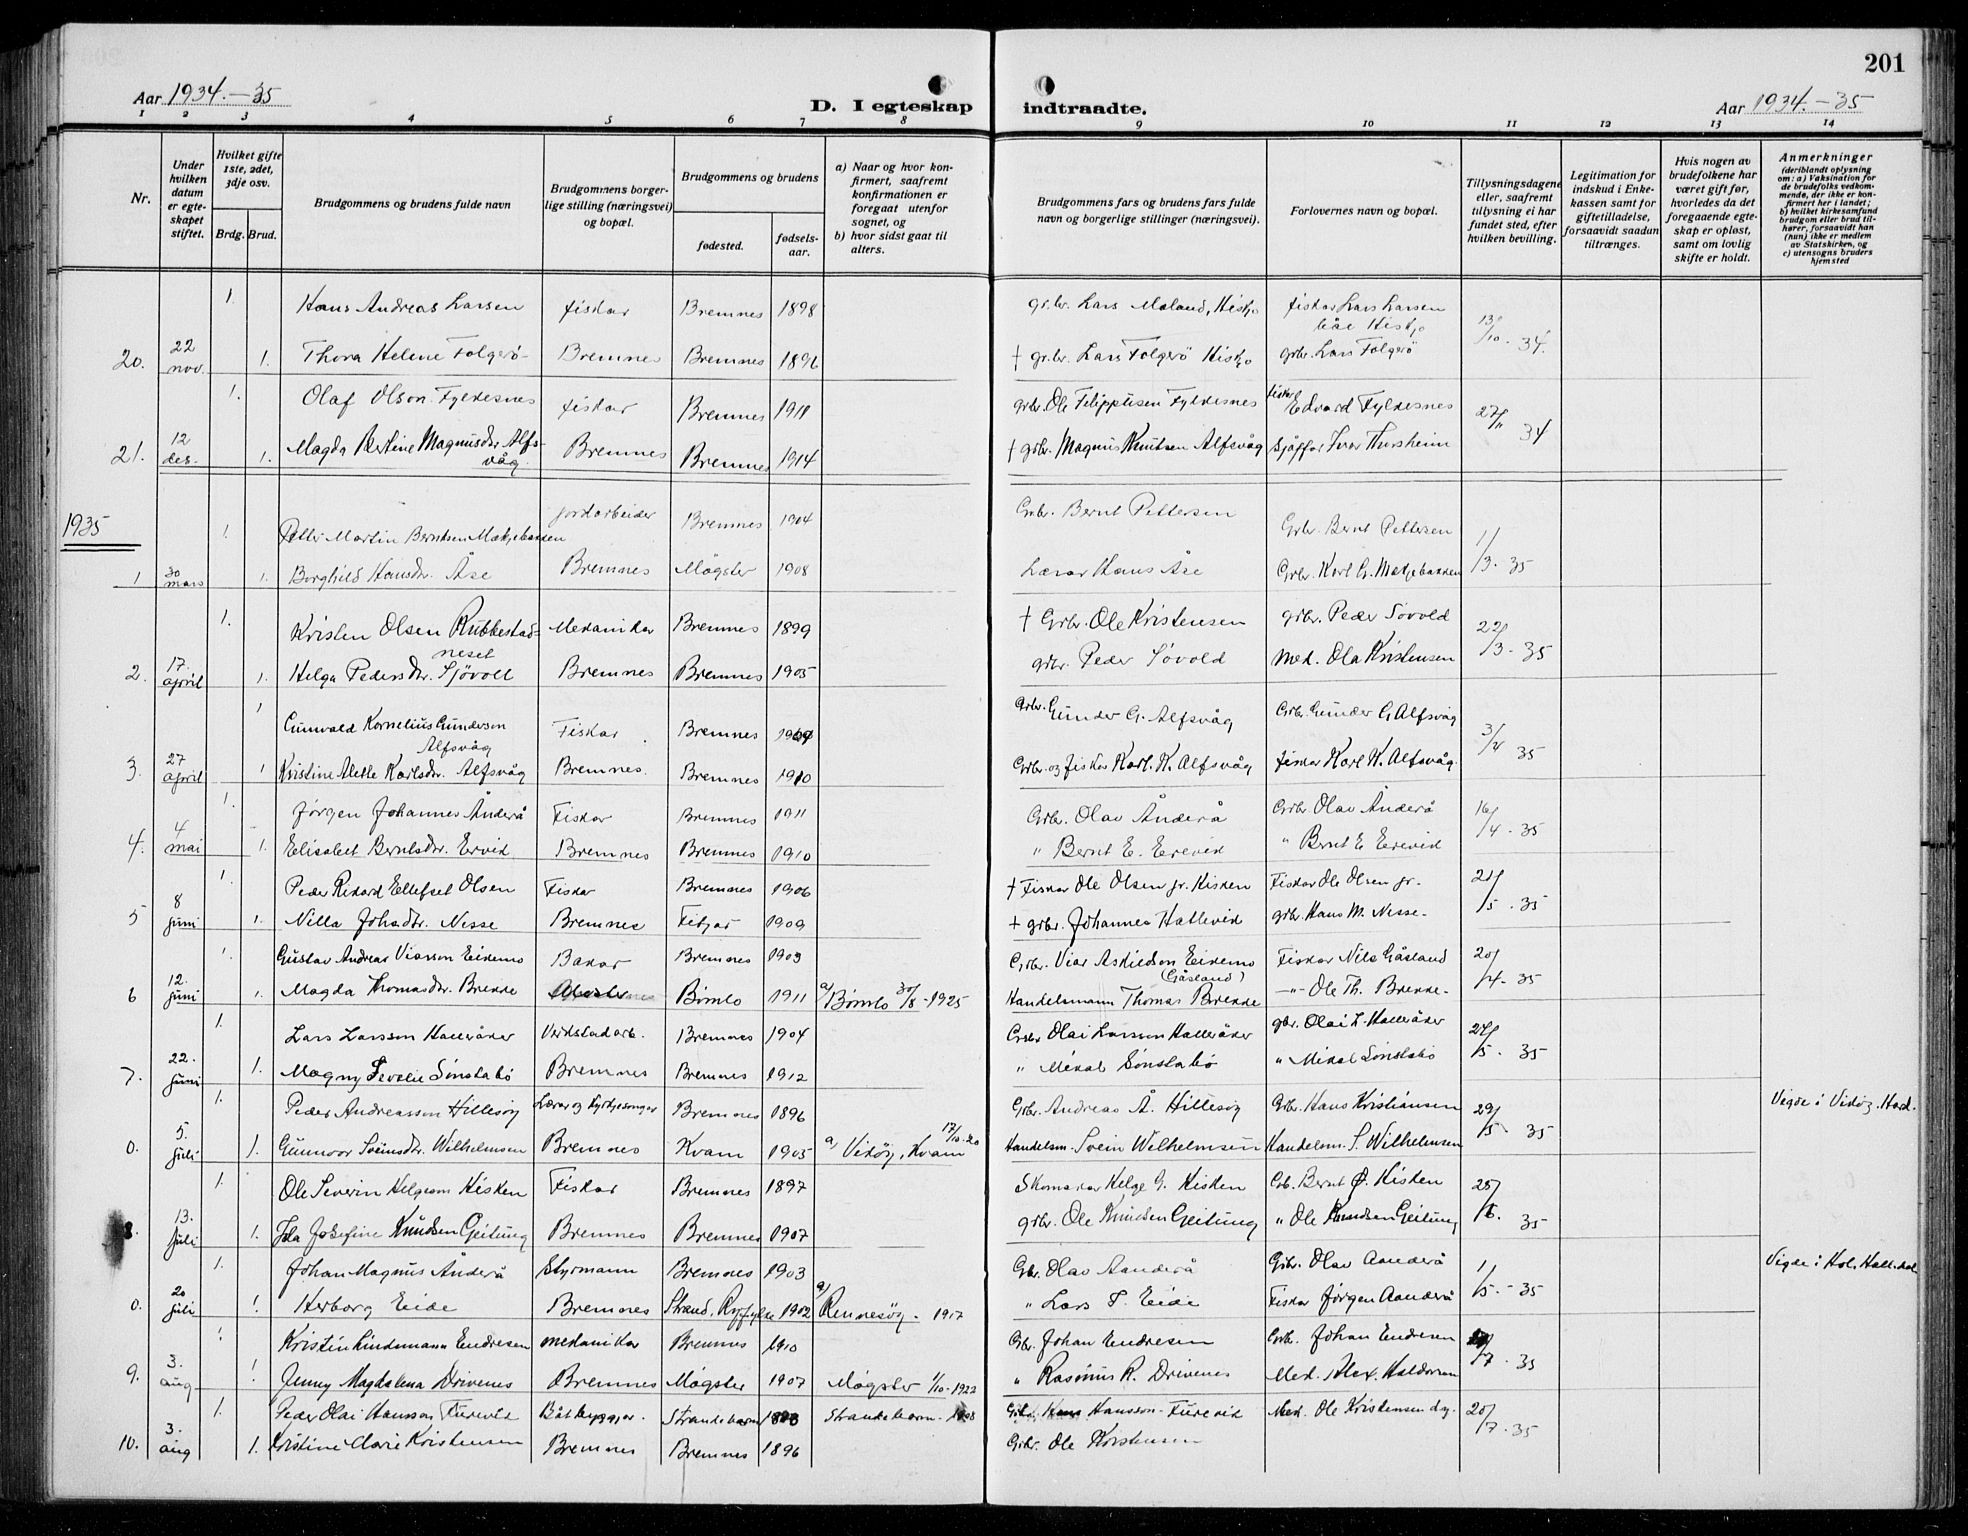 201
Aar 1934.-35
D. I egteskap indtraadte.
Aar 1934.-35
1 2 3 4 5 6 7 8 9 10 11 12 13 14
Nr.
Under hvilken datum er egteskapet stiftet.
Hvilket gifte 1ste, 2det, 3dje osv.
Brdg. Brud.
Brudgommens og brudens fulde navn
Brudgommens borgerlige stilling (næringsvei) og bopæl.
Brudgommens og brudens
fødested.
fødselsaar.
a) Naar og hvor konfirmert, saafremt konfirmationen er foregaat utenfor sognet, og
b) hvor sidst gaat til alters.
Brudgommens fars og brudens fars fulde navn og borgerlige stillinger (næringsvei).
Forlovernes navn og bopæl.
Tillysningsdagene eller, saafremt tillysning ei har fundet sted, efter hvilken bevilling.
Legitimation for indskud i Enkekassen samt for giftetilladelse, forsaavidt saadan tiltrænges.
Hvis nogen av brudefolkene har været gift før, hvorledes da det foregaaende egteskap er opløst, samt om lovlig skifte er holdt.
Anmerkninger (deriblandt oplysning om: a) Vaksination for de brudefolks vedkommende, der ikke er konfirmert her i landet; b) hvilket kirkesamfund brudgom eller brud tilhører, forsaavidt han (hun) ikke er medlem av Statskirken, og c) utensogns bruders hjemsted
1. Hans Andreas Larsen fiskar Bremnes 1898 gr.br. Lars Moland, Hiskjo fiskar Lars Larsen
Hiskjo 13/10. 34.
20. 22 nov. 1. Thora Helene Folgerø Bremnes Bremnes 1896 † gr.br. Lars Folgerø Hiskjo grbr. Lars Folgerø
1. Olaf Olson Fyldesnes fiskar Bremnes 1911 grbr. Ole Filippusen Fyldesnes fiskar Edvard Fyldesnes 27/11 34
21. 12 des. 1. Magda Bertine Magnusdtr. Alfsvåg Bremnes Bremnes 1914 † grbr. Magnus Knutsen Alfsvåg sjåffør Ivar Thorsheim
1935
1. Petter Martin Berntsen Mækjebakken jordarbeider Bremnes 1904 Grbr. Bernt Pettersen Grbr. Bernt Pettersen 1/3. 35
1 30 mars 1. Borghild Hansdtr. Åse Bremnes Møgster 1908 Lærar Hans Åse Grbr. Karl G. Mækjebakken
1. Kristen Olsen Rubbestadneset Mekanikar Bremnes 1899 † Grbr. Ole Kristensen grbr. Peder Søvold 22/3. 35
2. 17. april 1. Helga Pedersdtr. Sjøvoll Bremnes Bremnes 1905 grbr. Peder Søvold Med. Ola Kristensen
1 Gunvald Kornelius Gunderson Alfsvåg Fiskar Bremnes Grbr. Gunder G. Alfsvåg Grbr. Gunder G Alfsvåg 3/4 35
3. 27 april 1 Kristine Alette Karlsdtr. Alfsvåg Bremnes. Bremnes 1910 Grbr. og fiskar Karl. K. Alfsvåg fiskar Karl K. Alfsvåg.
1. Jørgen Johannes Ånderå Fiskar Bremnes 1911 Grbr. Olav Ånderå Grbr Olav Ånderå 16/4. 35
4. 4 mai 1. Elisabet Berntsdtr. Ervid Bremnes Bremnes 1910 " Bernt E. Erevid " Bernt E Erevid
1. Peder Rikard Ellefset Olsen Fiskar Bremnes 1906 † Fiskar Ole Olsen jr. Hisken Fiskar Ole Olsen jr. 21/5. 35
5 8 juni 1. Nilla Johsdtr. Nesse Bremnes Fitjar 1909 † grbr. Johannes Hallevid grbr. Hans M. Nesse.
1. Gustav Andreas Viarson Eidemo Bakar Bremnes 1903 Grbr. Viar Askildson Eidemo (Gåsland) Fiskar Nils Gåsland 20/4. 35
6 12. juni 1. Magda Thomasdtr. Brekke Bømlo 1911 a) Bømlo 30/8 - 1925 Handelsmann Thomas Brekke -"- Ole Th. Brekke.
1. Lars Larsson Halleråker Verkstadarb. Bremnes 1904 Grbr. Olai Larsson Halleråker gbr. Olai L. Halleråker 27/5. 35
7. 22. juni 1. Magny Sønstabø Bremnes Bremnes 1912 " Mikal Sønstabø " Mikal Sønstabø
1. Peder Andreasson Hillesøy Lærar og kyrkjesongar Bremnes 1896 Grbr. Andreas Å. Hillesøy Grbr. Hans Kristiansen 29/5. 35 Vigde i Vikøy. Hard.
0. 5. juli 1. Gunnvor Sveinsdtr. Wilhelmsen Bremnes Kvam 1905 a) Vikøy, Kvam 17/10-20 Handelsm. Svein Wilhelmsen Handelsm. S. Wilhelmsen
1. Ole Severin Helgeson Hisken Fiskar Bremnes 1897 Skomakar Helge G. Hisken Grb. Bernt Ø. Hisken 28/6. 35
8. 13. juli 1. Ida Josefine Knudsen Geitung Bremnes Bremnes 1907 grbr. Ole Knudsen Geitung " Ole Knudsen Geitung
1. Johan Magnus Ånderå Styrmann Bremnes 1903 Gbr. Olav Aanderå Grbr. Olav Aanderå 1/5. - 35 Vigde i Hol, Hallingdal
0. 20 juli 1. Herborg Eide Bremnes Strand, Ryfylke 1902 a) Rennesøy. 1917 " Lars T. Eide Fiskar Jørgen Aanderå
1. Kristen Lindemann Endresen mekanikar Bremnes 1910 Gbr. Johan Endresen Grbr. Johan Endresen /7. 35
9. 3. aug 1. Jenny Magdalena Drivenes Bremnes Møgster 1907 Møgster 1/10-1922 " Rasmus R. Drivenes Med. Alex. Halderson
1. Peder Olai Hansson Furevid Båtbyggjar. Strandebarm Strandebarm. Grbr. Hans Hansson Furevid Med. Ole Kristensen d.y. 20/7. 35
10. 3. aug 1. Kristine Marie Kristensen Bremnes Bremnes 1896 Grbr. Ole Kristensen